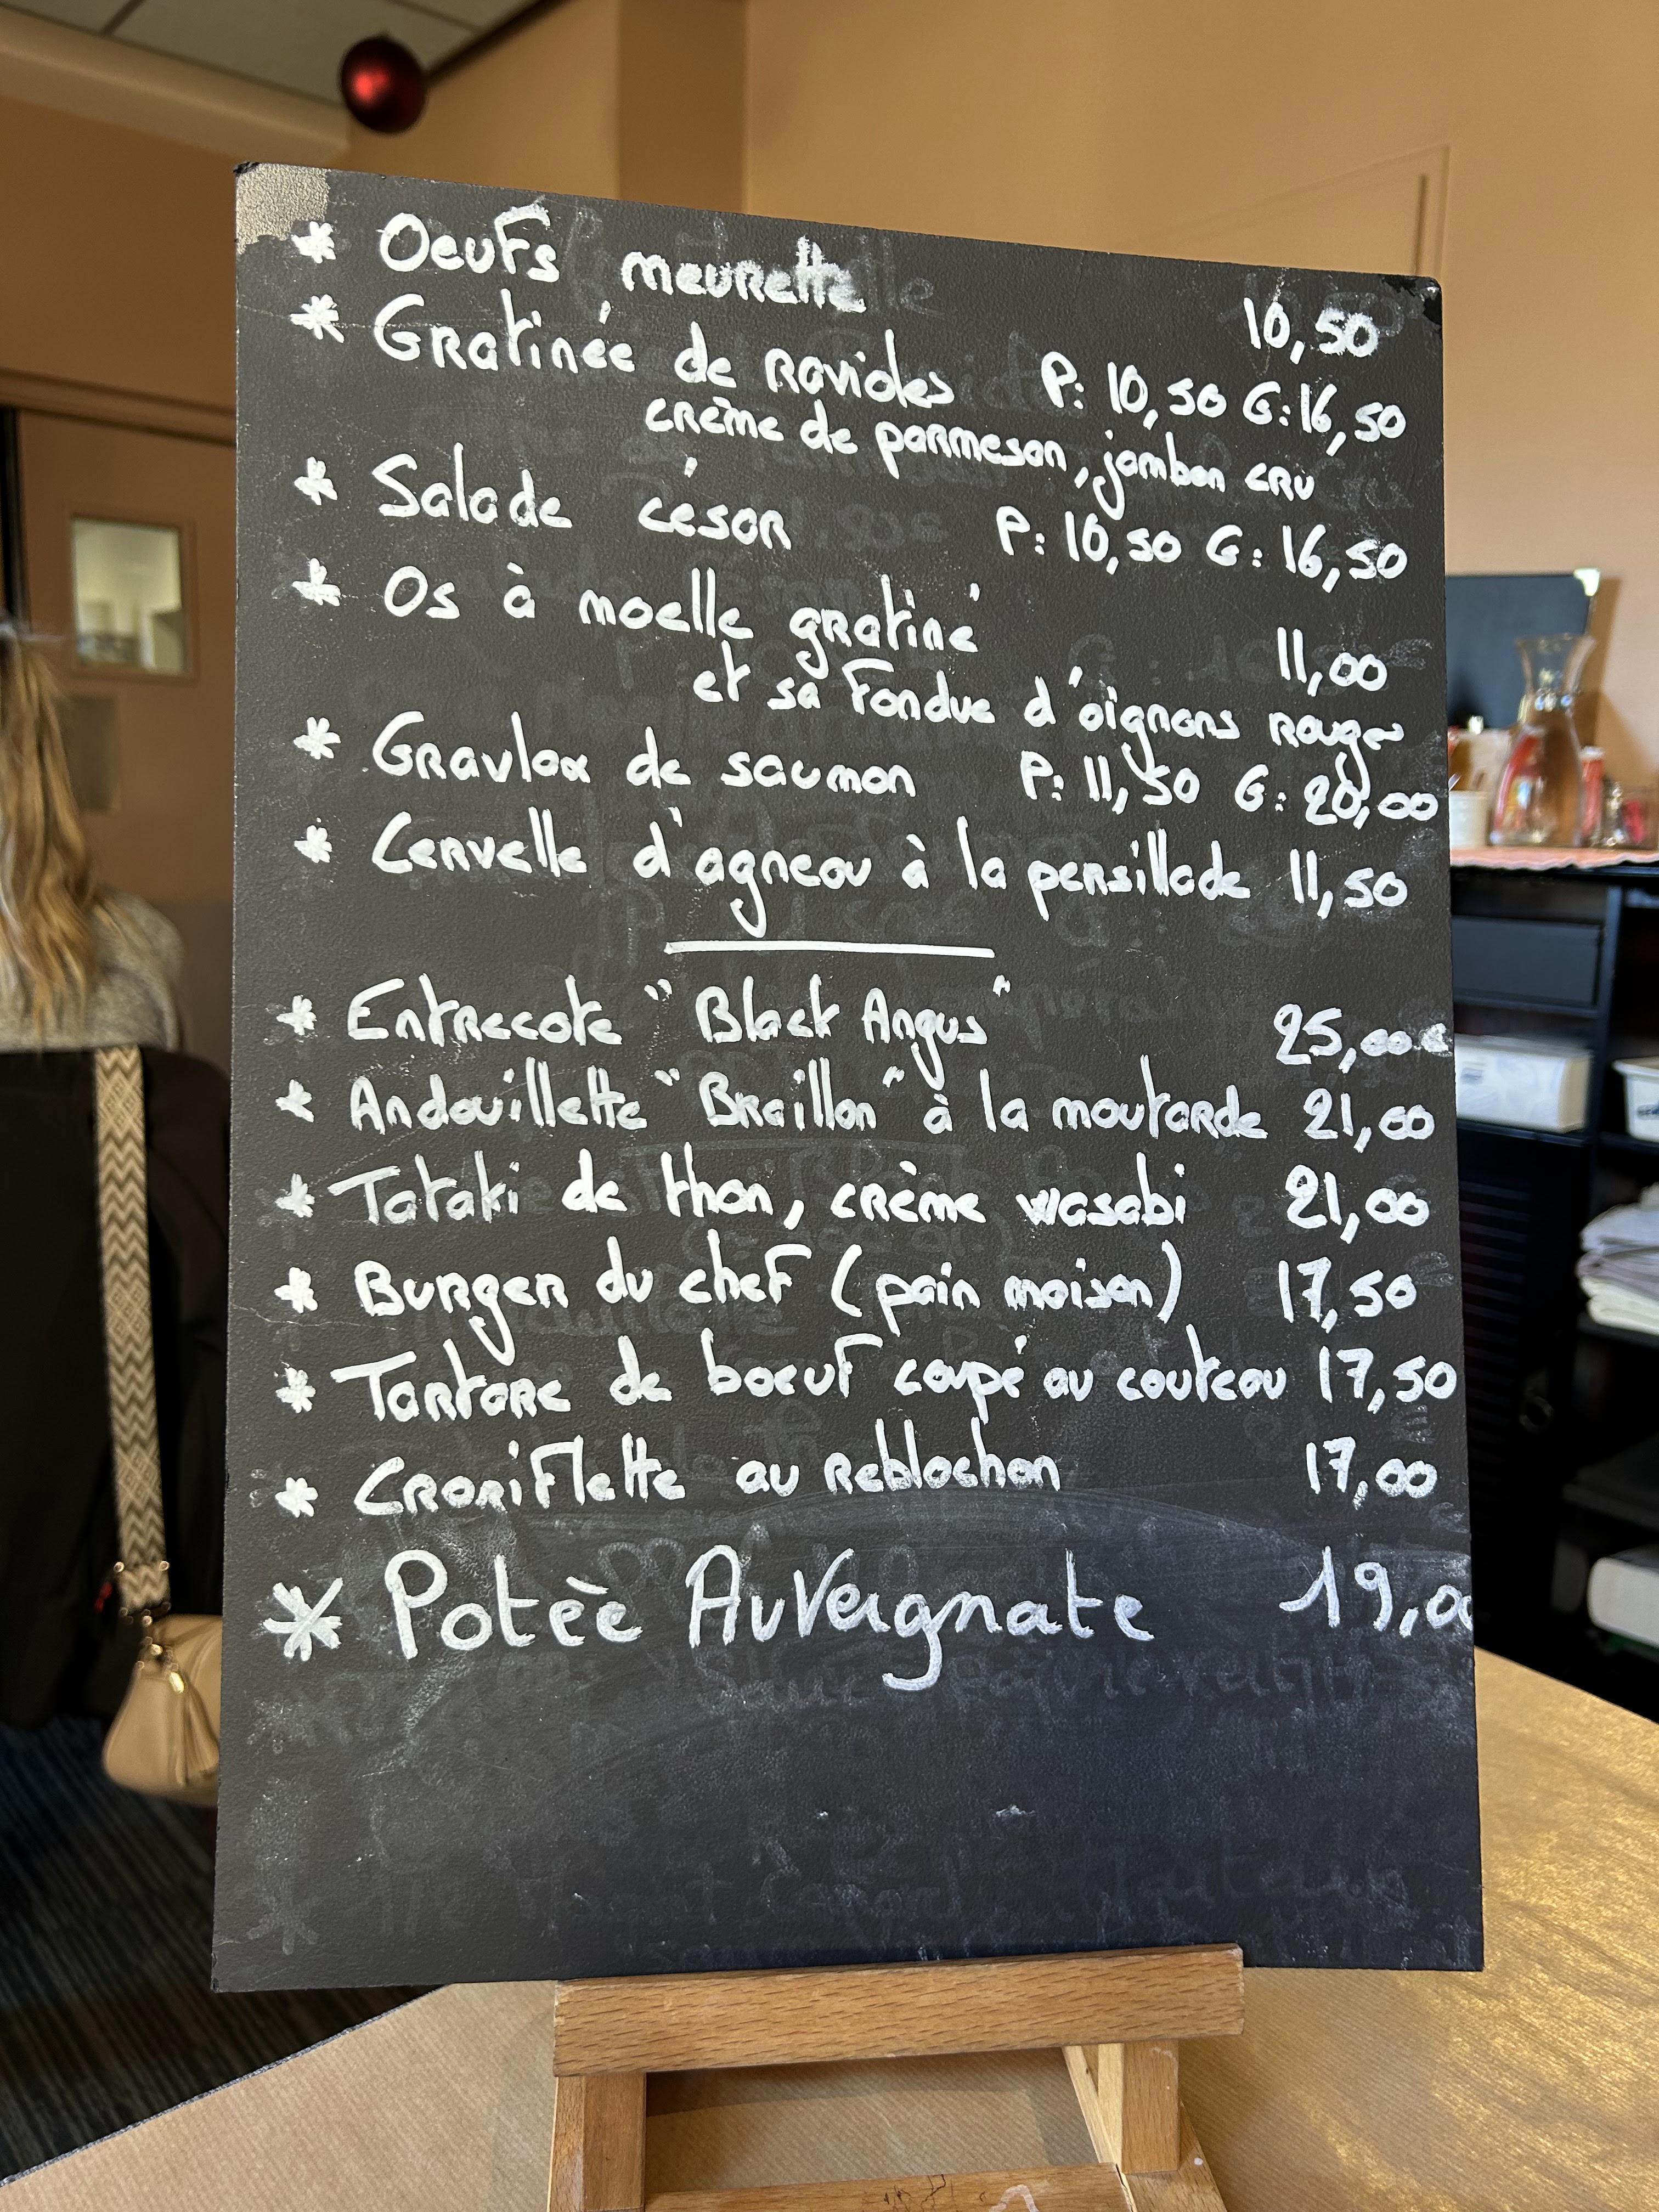 * Oeufs meurette 10,50
* Gratinée de Ravioles P: 10,50 G: 16,50
crème de parmesan, jambon cru
* Salade césar P: 10,50 G: 16,50
* Os à moelle gratiné 11,00
et sa fondue d'oignons rouges
* Gravlax de saumon P: 11,50 G: 20,00
* Cervelle d'agneau à la persillade 11,50
* Entrecote "Black Angus" 25,00€
* Andouillette "Braillon" à la moutarde 21,00
* Tataki de thon, crème wasabi 21,00
* Burger du chef (pain maison) 17,50
* Tartare de boeuf coupé au couteau 17,50
* Croziflette au Reblochon 17,00
* Potèe Auvergnate 19,0